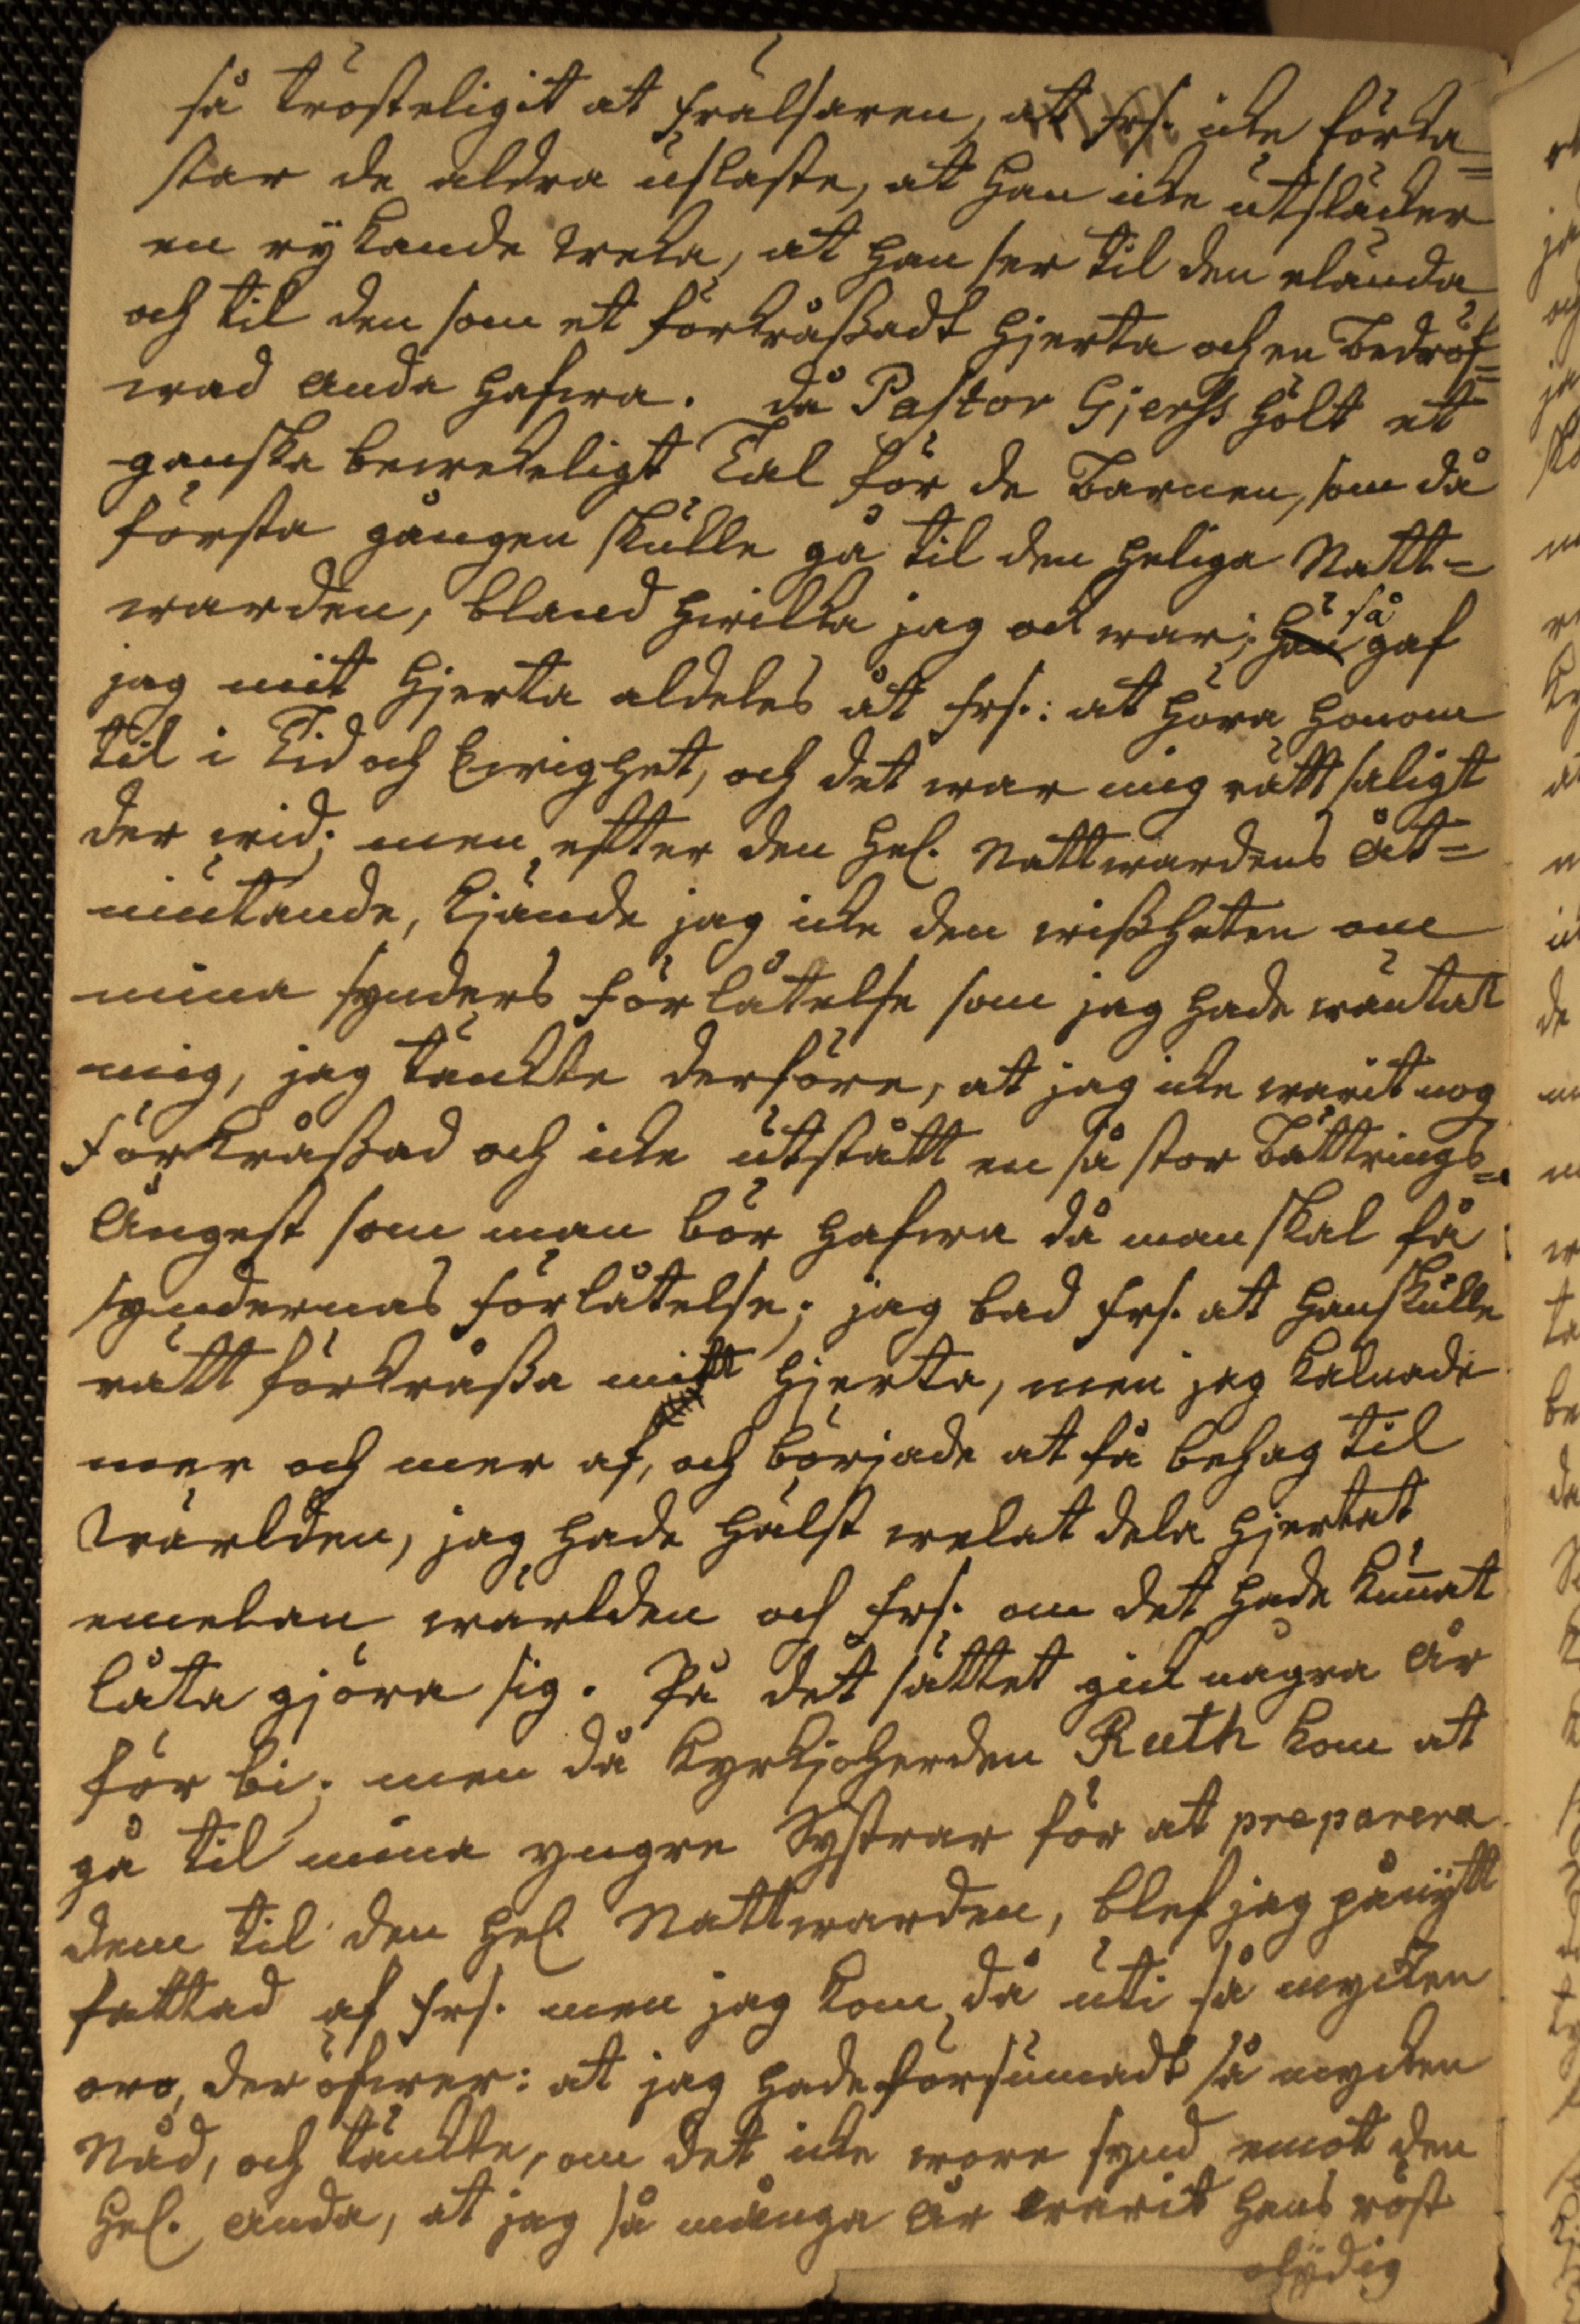 så trösteligit at Frälsaren, at Frs. icke förka=
star de aldra uslaste, at Han icke utsläcker
en rykande weka, at Han ser til den elända
och til den som et förkråssadt Hjerta och en Bedröf=
wad Anda Hafwa. då Pastor Gjerss hölt et
ganska beweckeligt Tal för de Barnen, som då
första gången skulle gå til den Heliga Natt=
warden, bland Hwilka jag ock war; så gaf
jag mit Hjerta aldeles åt Frs.: at Höra Honom
til i Tid och Ewighet, och det war mig rätt saligt
der wid; men efter den Hel. Nattwardens åt=
niutande, kjände jag icke den wissheten om
mina synders Förlåtelse som jag Hade wäntat
mig, jag tänckte derföre, at jag icke warit nog
Förkråssad och icke utstått en så stor Bättrings=
Ångest som man bör Hafwa då man skal få
syndernas Förlåtelse; jag bad Frs. at Han skulle
rätt förkråssa mitt Hjerta, men jag kalnade
mer och mer af, och började at få behag til
Wärlden, jag Hade Hälst welat dela Hjertat
emelan wärlden och Frs. om det Hade kunnat
låta gjöra sig. På det sättet gick några År
för bi; men då Kyrkjoherden Ruth kom at
gå til mina yngre Systrar för at preparera
dem til den Hel. Nattwarden, blef jag pånytt
fattad af Frs. men jag kom då uti så mycken
oro, der öfwer: at jag Hade försumadt så mycken
Nåd, och tänckte, om det icke wore synd emot den
Hel. Anda, at jag så många År warit Hans röst
olydig